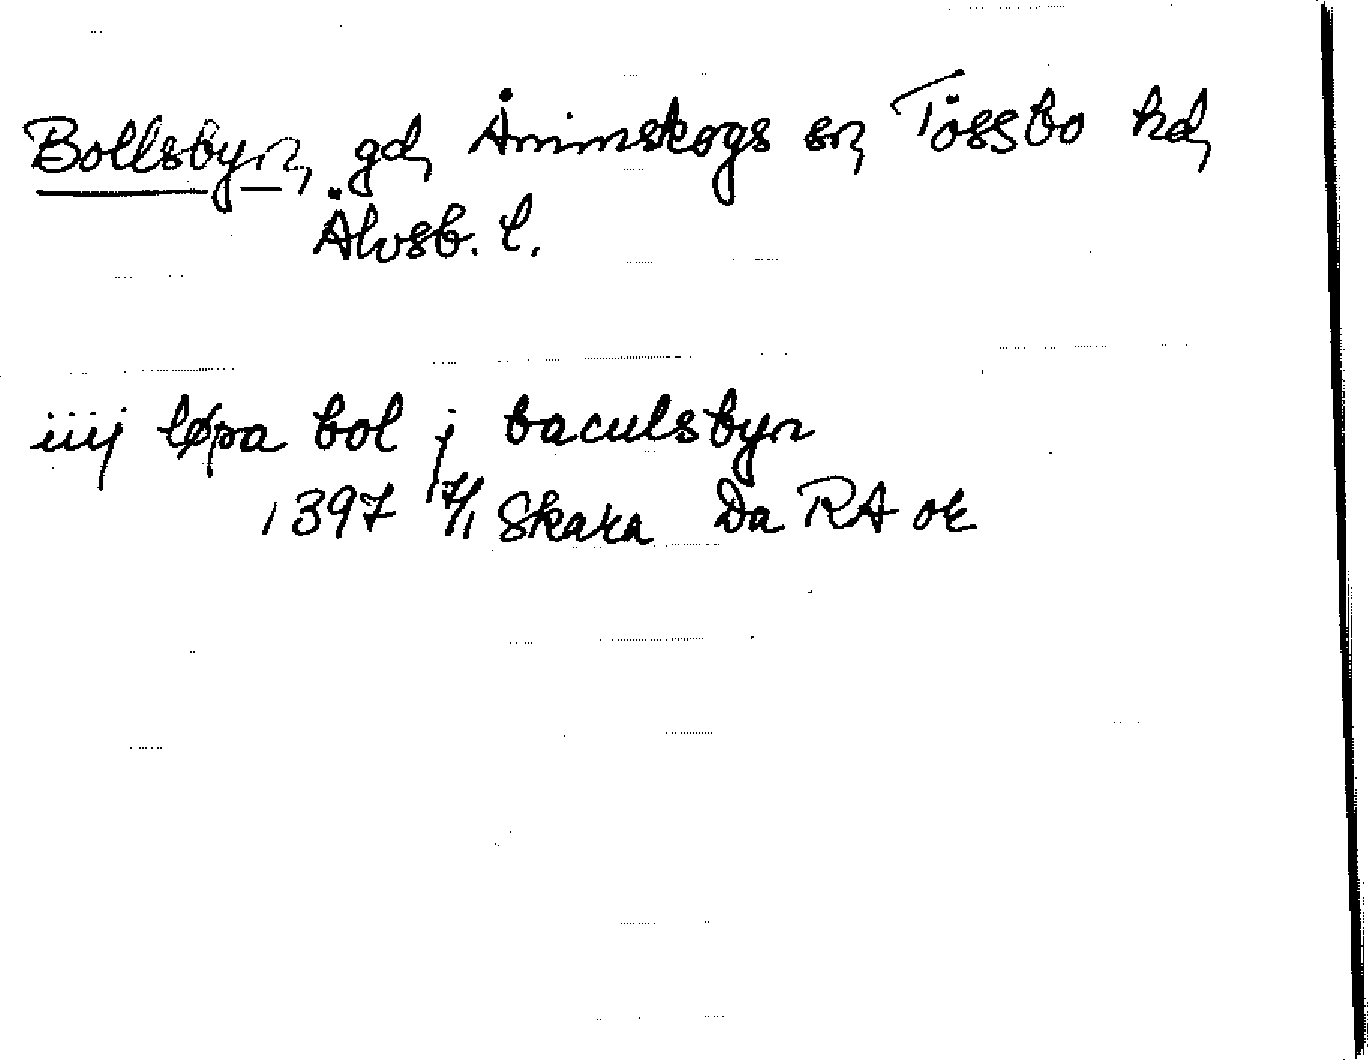 Bollsbyn, gd, Ånimskogs sn, Tössbo hd,
Älvsb. l.
iiij løpa bol j baculsbyn
1397 7/1 Skara Da RA or